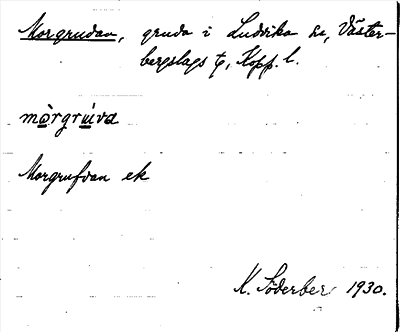 Morgruvan, gruva i Ludvika sn, Väster-
bergslags tg, Kopp. l.
mòrgrúvа
Morgrufvan ek
K. Söderberg 1930.